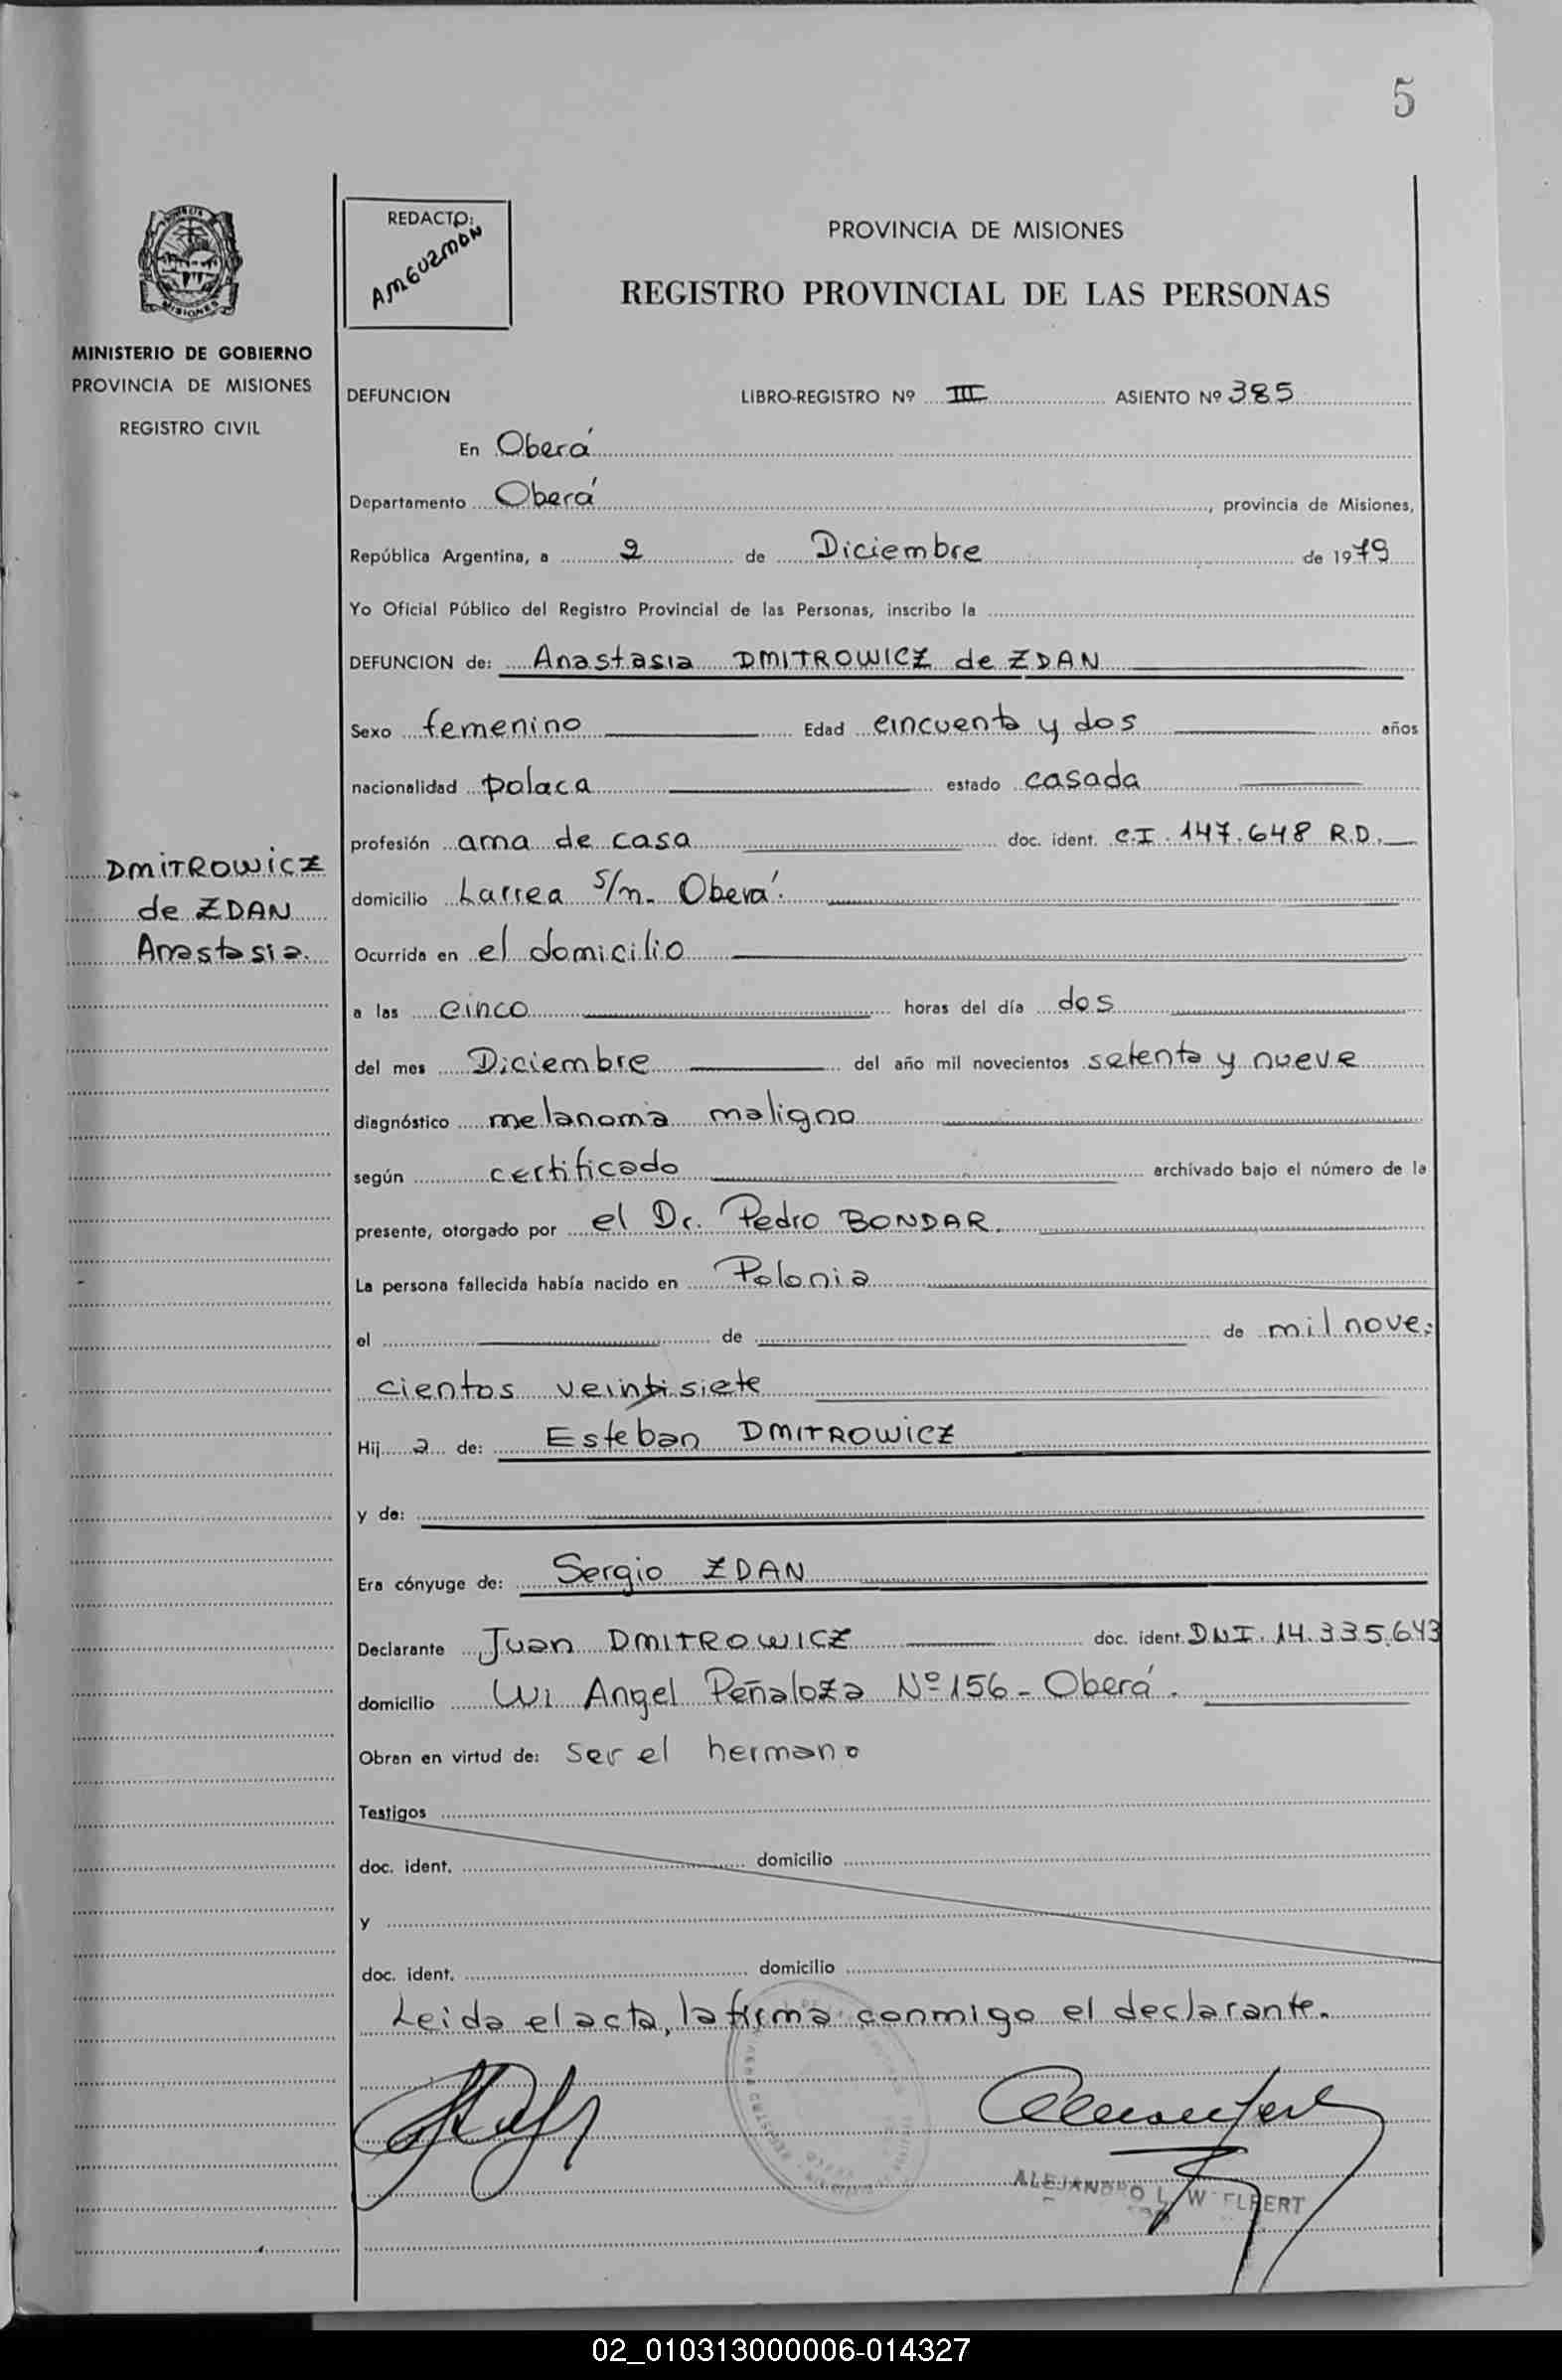 5
REDACTO:
AMGUZMAN
PROVINCIA DE MISIONES
REGISTRO PROVINCIAL DE LAS PERSONAS
MISIONES
MINISTERIO DE GOBIERNO
PROVINCIA DE MISIONES
REGISTRO CIVIL
DEFUNCION LIBRO-REGISTRO Nº III ASIENTO Nº 385
En Oberá
Departamento Oberá, provincia de Misiones,
República Argentina, a 2 de Diciembre de 1979
Yo Oficial Público del Registro Provincial de las Personas, inscribo la
DEFUNCION de: Anastasia DMITROWICZ de ZDAN
Sexo femenino Edad cincuenta y dos años
nacionalidad polaca estado casada
profesión ama de casa doc. ident. C.I. 147.648 R.D.
DMITROWICZ
de ZDAN
Anastasia.
domicilio Larrea S/n. Oberá.
Ocurrida en el domicilio
a las cinco horas del día dos
del mes Diciembre del año mil novecientos setenta y nueve
diagnóstico melanoma maligno
según certificado archivado bajo el número de la
presente, otorgado por el Dr. Pedro BONDAR.
La persona fallecida había nacido en Polonia
el de de mil nove-
cientos veintisiete
Hij a de: Esteban DMITROWICZ
y de:
Era cónyuge de: Sergio ZDAN
Declarante Juan DMITROWICZ doc. ident. D.N.I. 14.335.643
domicilio Angel Peñaloza Nº 156 - Oberá.
Obran en virtud de: ser el hermano
Testigos
doc. ident. domicilio
y
doc. ident. domicilio
Leida el acta, la firma conmigo el declarante.
ALEJANDRO L. W
02_010313000006-014327